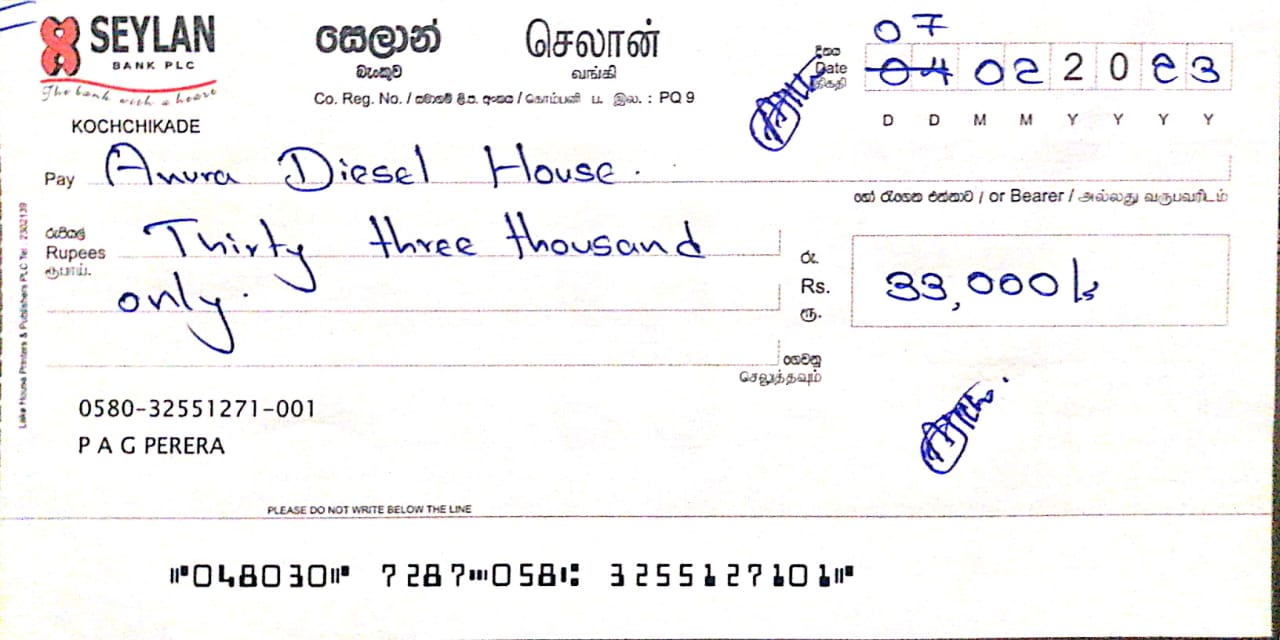 SEYLAN
BANK PLC
The bank with a heart
සෙලාන්
බැංකුව
செலான்
வங்கி
Co. Reg. No. / සමාගම් ලි.ප. අංකය / கம்பனி ப. இல. : PQ 9
07
දිනය
Date
திகதி
04 02 2023
D D M M Y Y Y Y
KOCHCHIKADE
Pay Anura Diesel House.
හෝ රැගෙන එන්නාට / or Bearer / அல்லது வருபவரிடம்
රුපියල්
Rupees
ரூபாய்.
Thirty three thousand
only.
රු.
Rs.
ரூ.
33,000/=
ගෙවනු
செலுத்தவும்
0580-32551271-001
P A G PERERA
Lake House Printers & Publishers PLC Tel: 2302139
PLEASE DO NOT WRITE BELOW THE LINE
⑈048030⑈ 7287⑉058⑆ 3255127101⑈